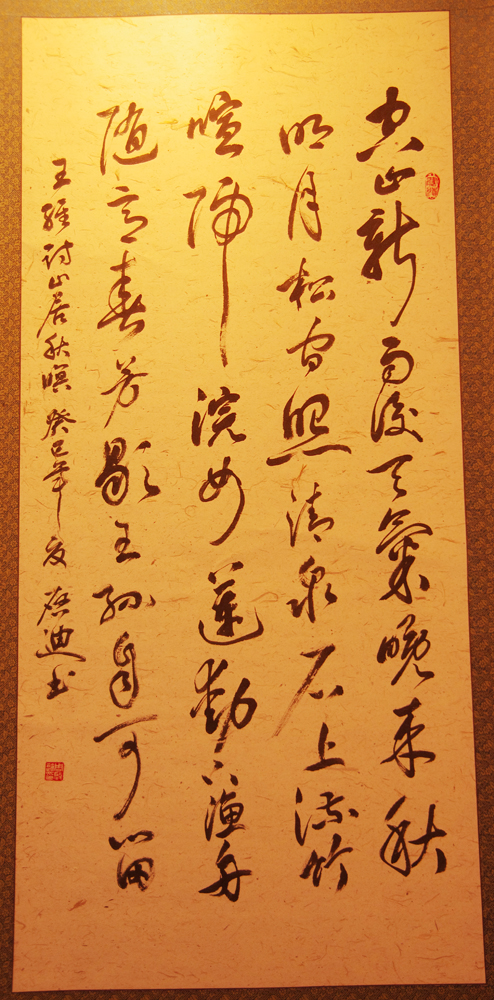 空山新雨後天氣晚来秋
明月松间照清泉石上流竹
喧歸浣女蓮動下漁舟
随意春芳歇王孫自可留
王維詩山居秋暝 癸巳年夏 启迪书